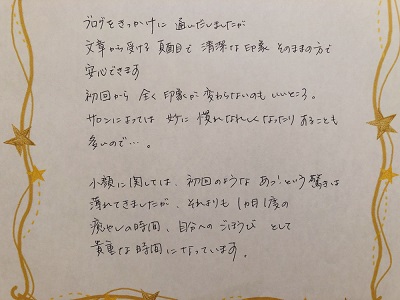 ブログをきっかけに 通いだしましたが
文章から受ける 真面目で 清潔な印象 そのままの方で
安心できます
初回から 全く 印象が 変わらないのも いいところ。
サロンによっては 妙に 慣れなれしくなったり あることも
多いので…。
小顔に関しては、初回のような あっ!という 驚きは
薄れてきましたが、それよりも 1ヵ月1度の
癒やしの時間、自分への ごほうび として
貴重な時間になっています。